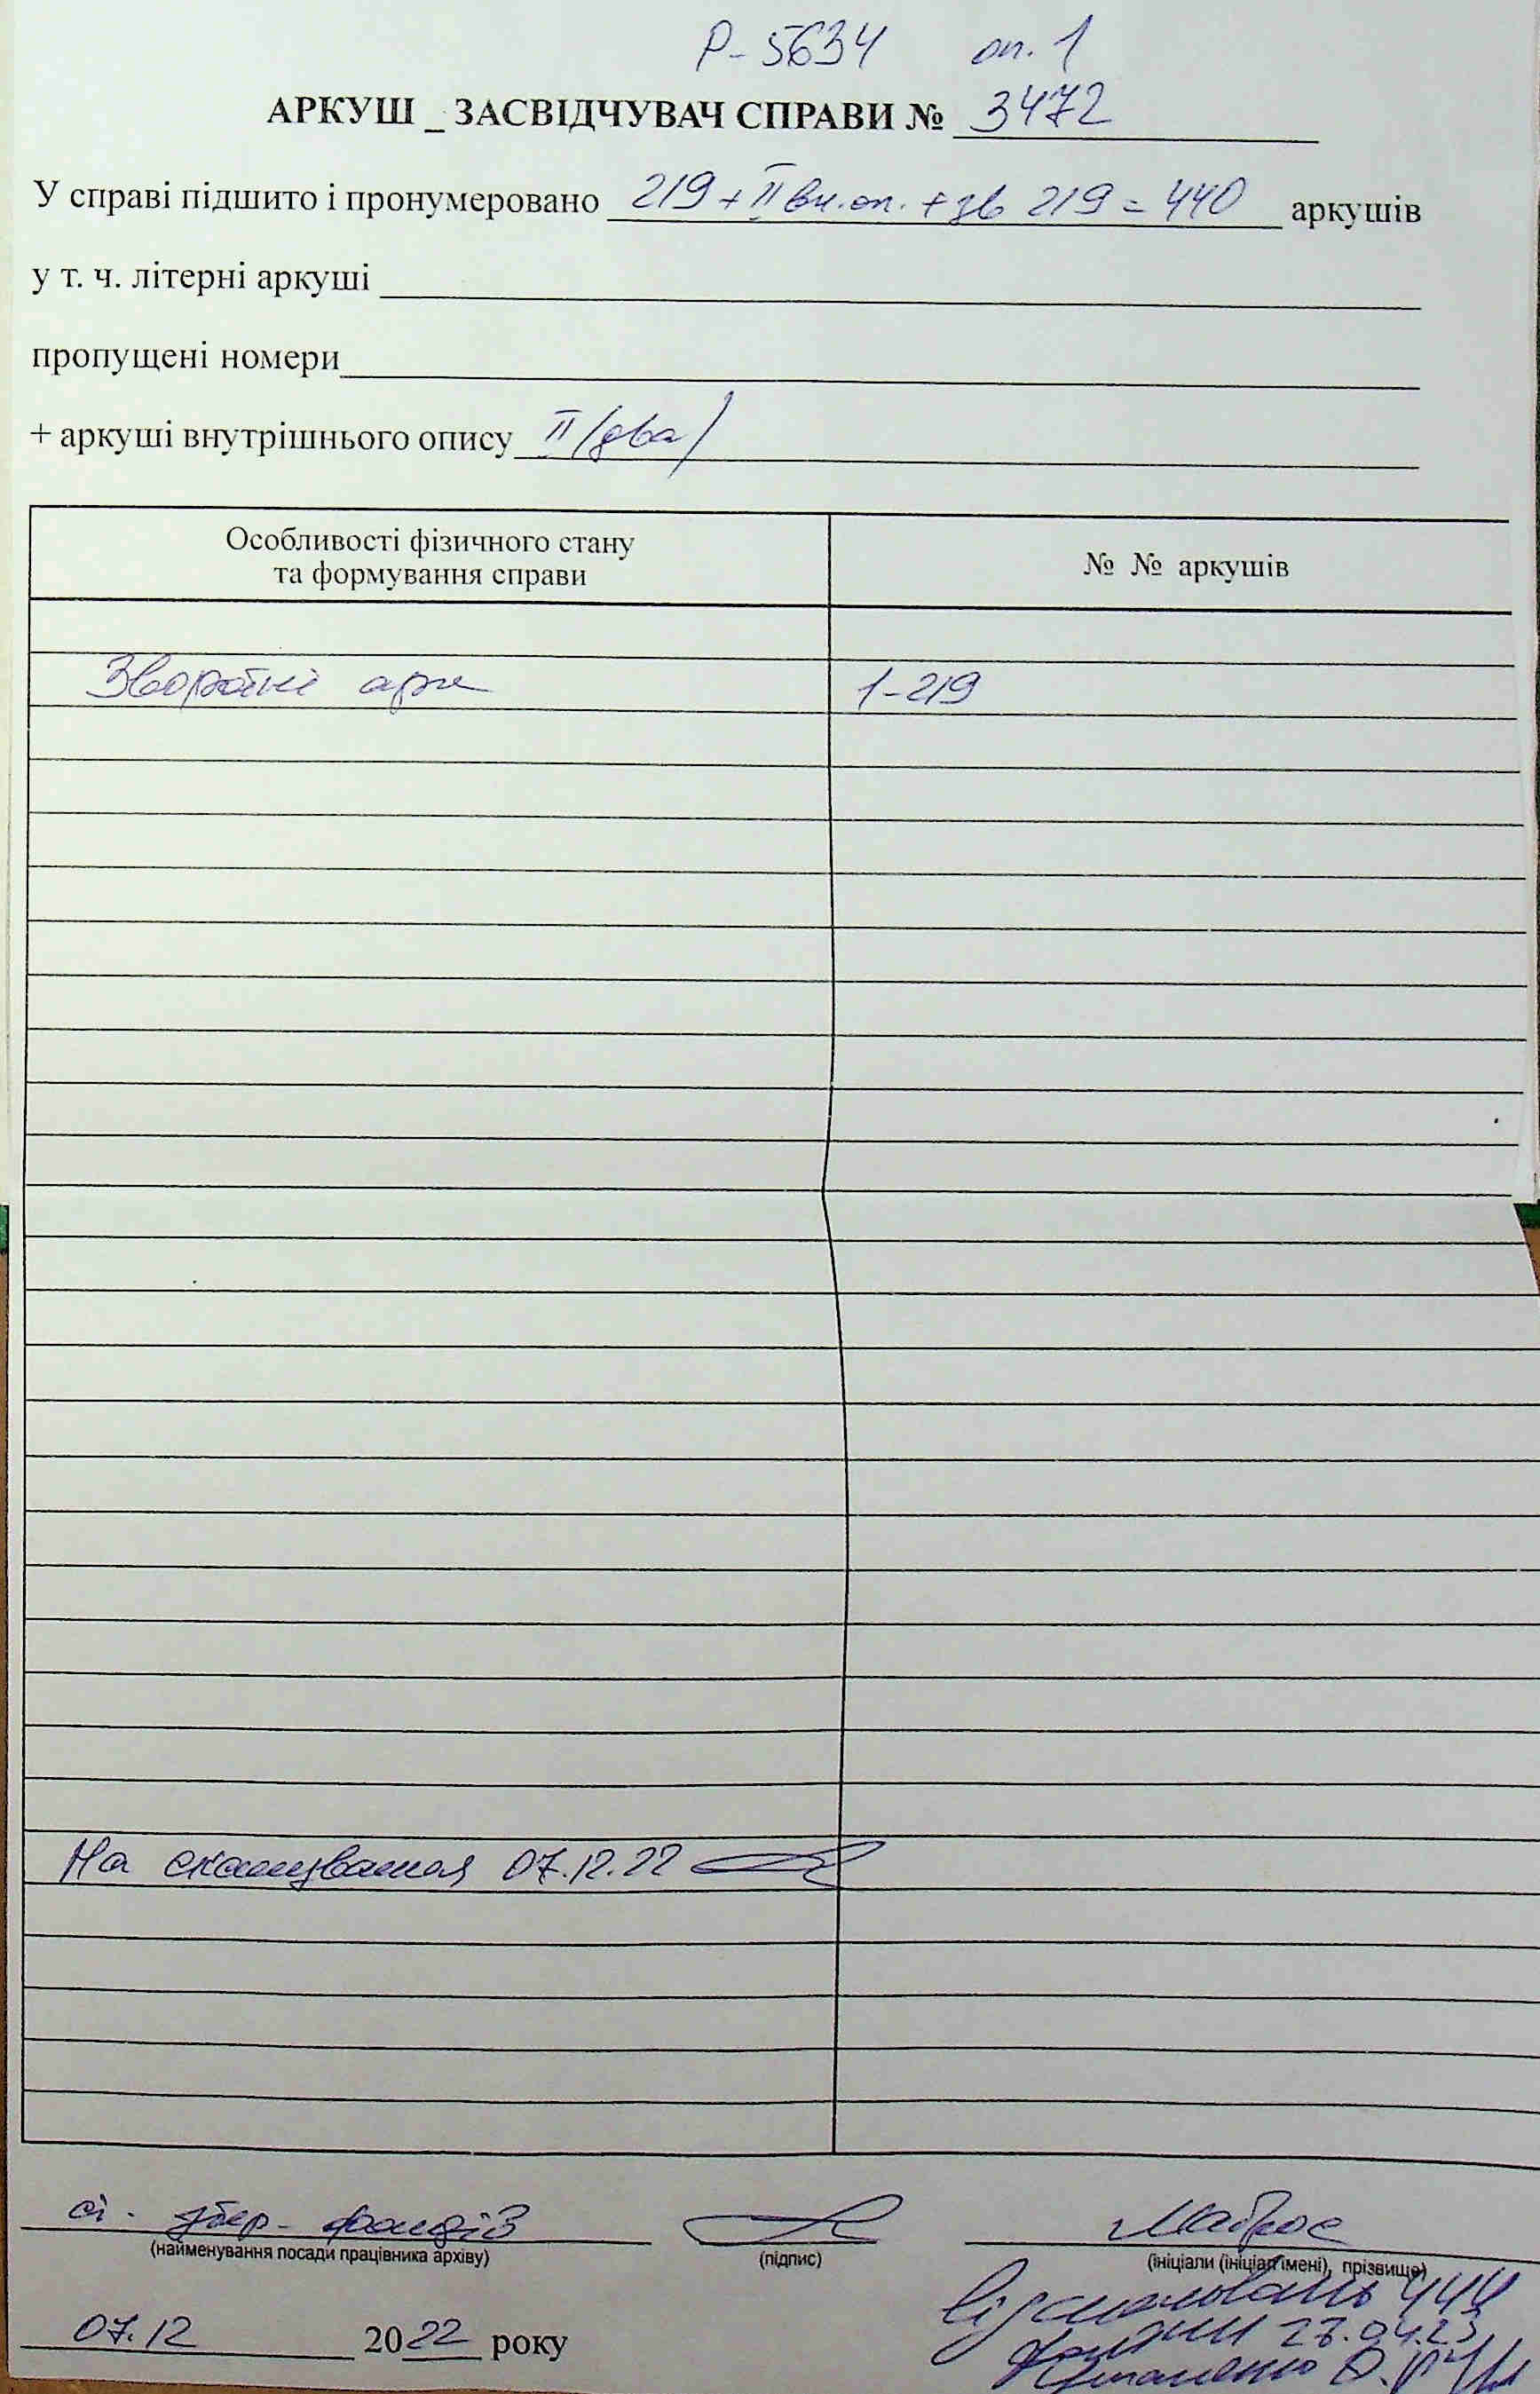 Р-5634 оп. 1
АРКУШ _ ЗАСВІДЧУВАЧ СПРАВИ № 3472
У справі підшито і пронумеровано 219 + II вн.оп. + зв 219 = 440 аркушів
у т. ч. літерні аркуші
пропущені номери
+ аркуші внутрішнього опису II (два)
Особливості фізичного стану
та формування справи
№ № аркушів
Зворотні арк 1-219
На сканування 07.12.22
ст. збер. фондів
(найменування посади працівника архіву) (підпис) (ініціали (ініціал імені), прізвище)
07.12 2022 року
444
27.04.23